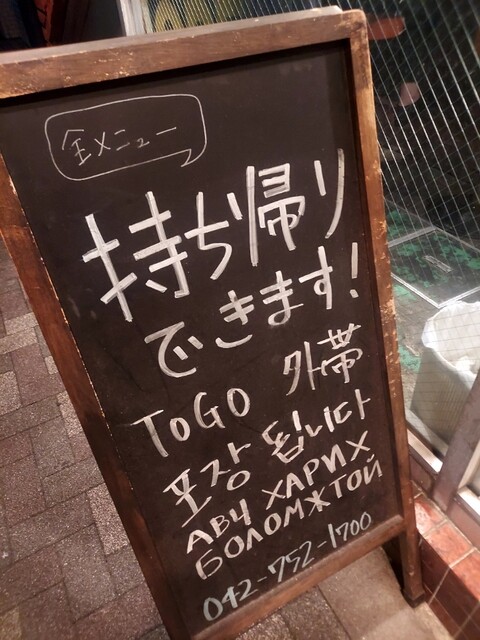 全メニュー
持ち帰り
できます!
ToGO 外帯
포장 됩니다
АВЧ ХАРИХ
БОЛОМЖТОЙ
042-752-1700